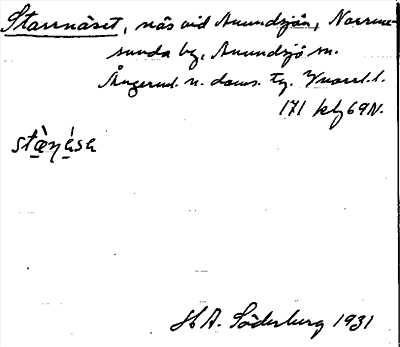 Starrnäset, näs vid Anundsjön, Norrum-
sunda by, Anundsjö sn.
Ångerml. n. doms. tg. Vnorrl. l.
171 kbf 69 N.
stæ̀ṇása
H A. Söderberg 1931